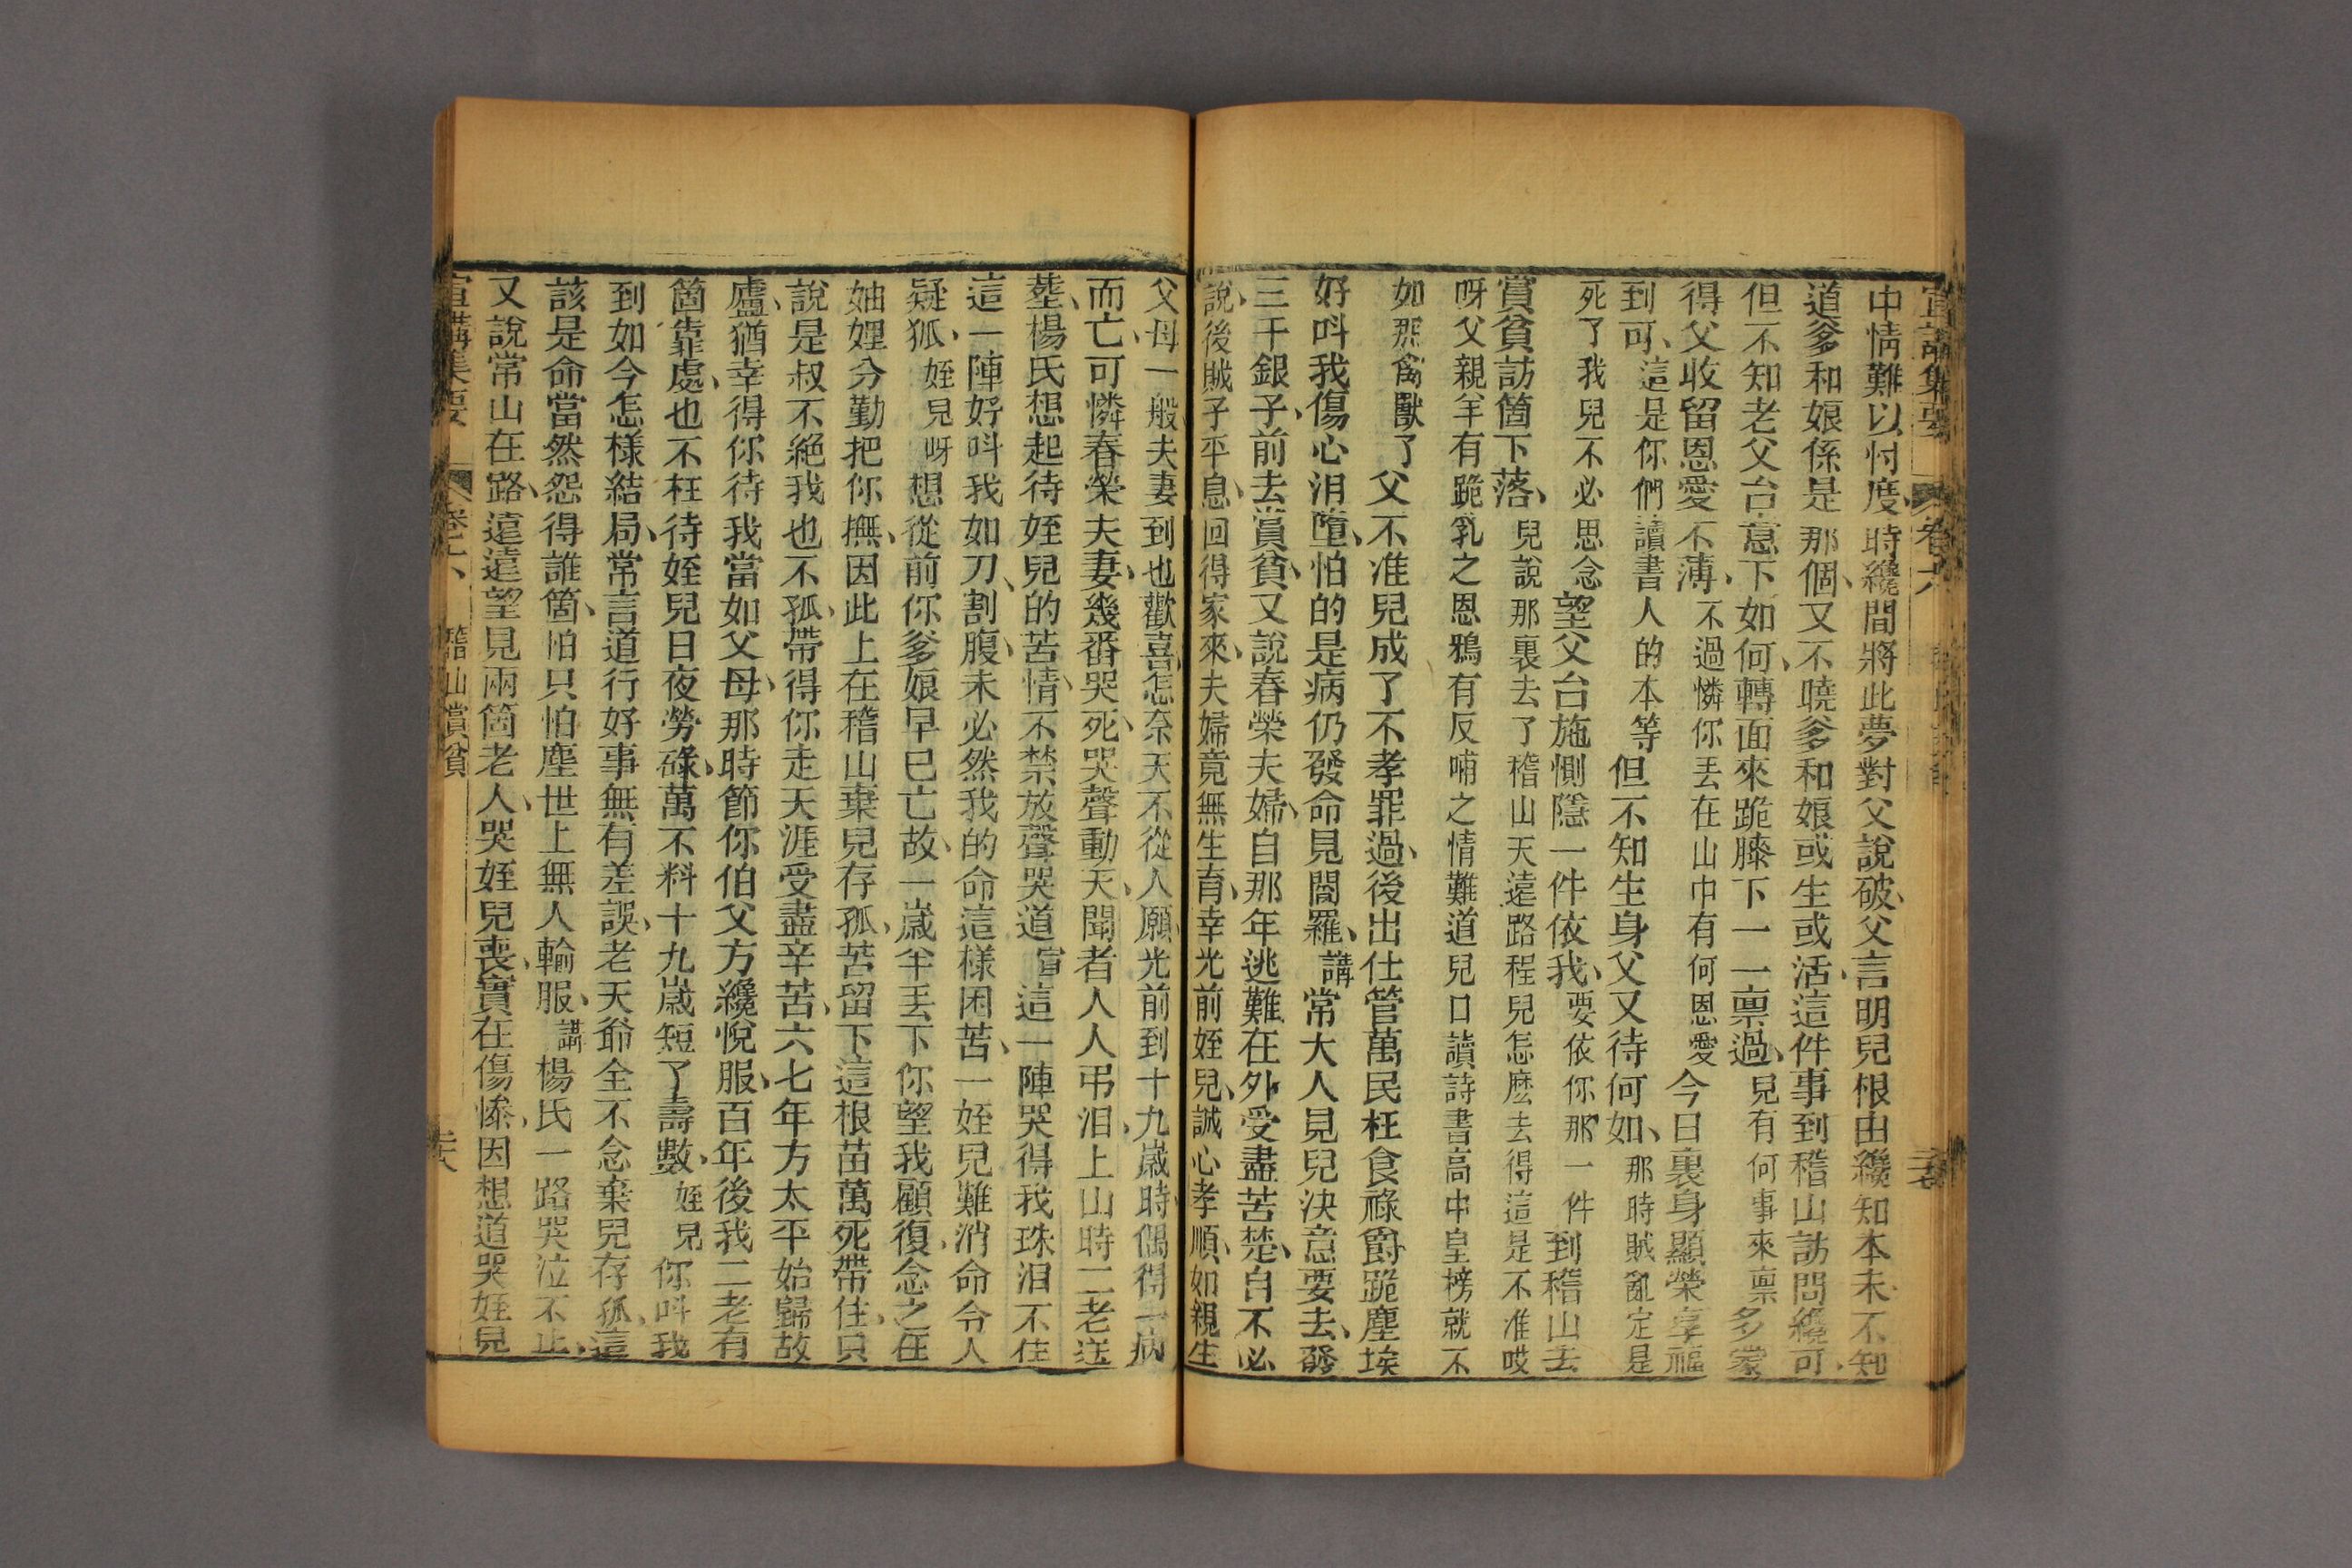 宣講集要 卷六
中情難以忖度時纔間將此夢對父說破父言明兒根由纔知本末不知
道爹和娘係是那個又不曉爹和娘或生或活這件事到稽山訪問纔可
但不知老父台意下如何轉面來跪膝下一一禀過兒有何事來禀多蒙
得父收留恩愛不薄不過憐你丟在山中有何恩愛今日裏身顯榮享福
到可這是你們讀書人的本等但不知生身父又待何如那時賊亂定是
死了我兒不必思念望父台施惻隱一件依我要依你那一件到稽山去
賞貧訪箇下落兒說那裏去了稽山天遠路程兒怎麽去得這是不准哎
呀父親羊有跪乳之恩鴉有反哺之情難道兒口讀詩書高中皇榜就不
如那禽獸了父不准兒成了不孝罪過後出仕管萬民枉食祿爵跪塵埃
好叫我傷心泪墮怕的是病仍發命見閻羅講常大人見兒決意要去發
三千銀子前去賞貧又說春榮夫婦自那年逃難在外受盡苦楚自不必
說後賊子平息回得家來夫婦竟無生育幸光前姪兒誠心孝順如親生
父母一般夫妻到也歡喜怎奈天不從人願光前到十九嵗時偶得一病
而亡可憐春榮夫妻幾番哭死哭聲動天聞者人人弔泪上山時二老送
塟楊氏想起待姪兒的苦情不禁放聲哭道宣這一陣哭得我珠泪不住
這一陣好叫我如刀割腹未必然我的命這樣困苦一姪兒難消命令人
疑狐姪兒呀想從前你爹娘早已亡故一嵗半丟下你望我顧復念之在
妯娌分勤把你撫因此上在稽山棄兒存孤苦留下這根苗萬死帶住只
說是叔不絶我也不孤帶得你走天涯受盡辛苦六七年方太平始歸故
廬猶幸得你待我當如父母那時節你伯父方纔悅服百年後我二老有
箇靠處也不枉待姪兒日夜勞碌萬不料十九嵗短了壽數姪兒你叫我
到如今怎樣結局常言道行好事無有差誤老天爺全不念棄兒存孤這
該是命當然怨得誰箇怕只怕塵世上無人輸服講楊氏一路哭泣不止
又說常山在路遠遠望見兩箇老人哭姪兒喪實在傷慘因想道哭姪兒
宣講集要 卷六 稽山賞貧 二六